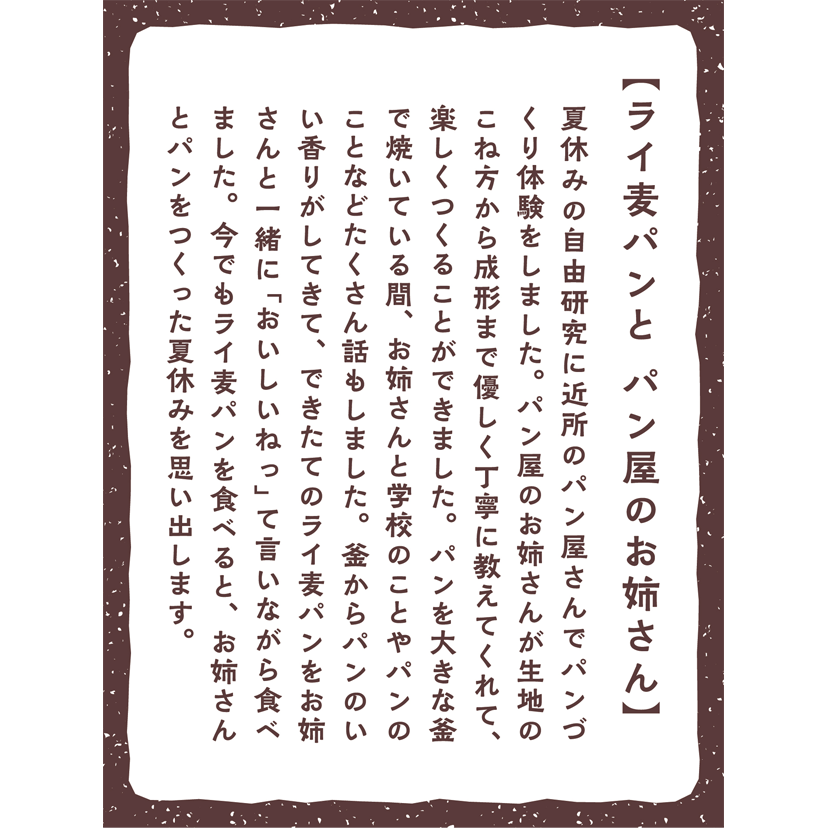 【ライ麦パンと パン屋のお姉さん】
夏休みの自由研究に近所のパン屋さんでパンづ
くり体験をしました。パン屋のお姉さんが生地の
こね方から成形まで優しく丁寧に教えてくれて、
楽しくつくることができました。パンを大きな釜
で焼いている間、お姉さんと学校のことやパンの
ことなどたくさん話もしました。釜からパンのい
い香りがしてきて、できたてのライ麦パンをお姉
さんと一緒に「おいしいねっ」て言いながら食べ
ました。今でもライ麦パンを食べると、お姉さん
とパンをつくった夏休みを思い出します。